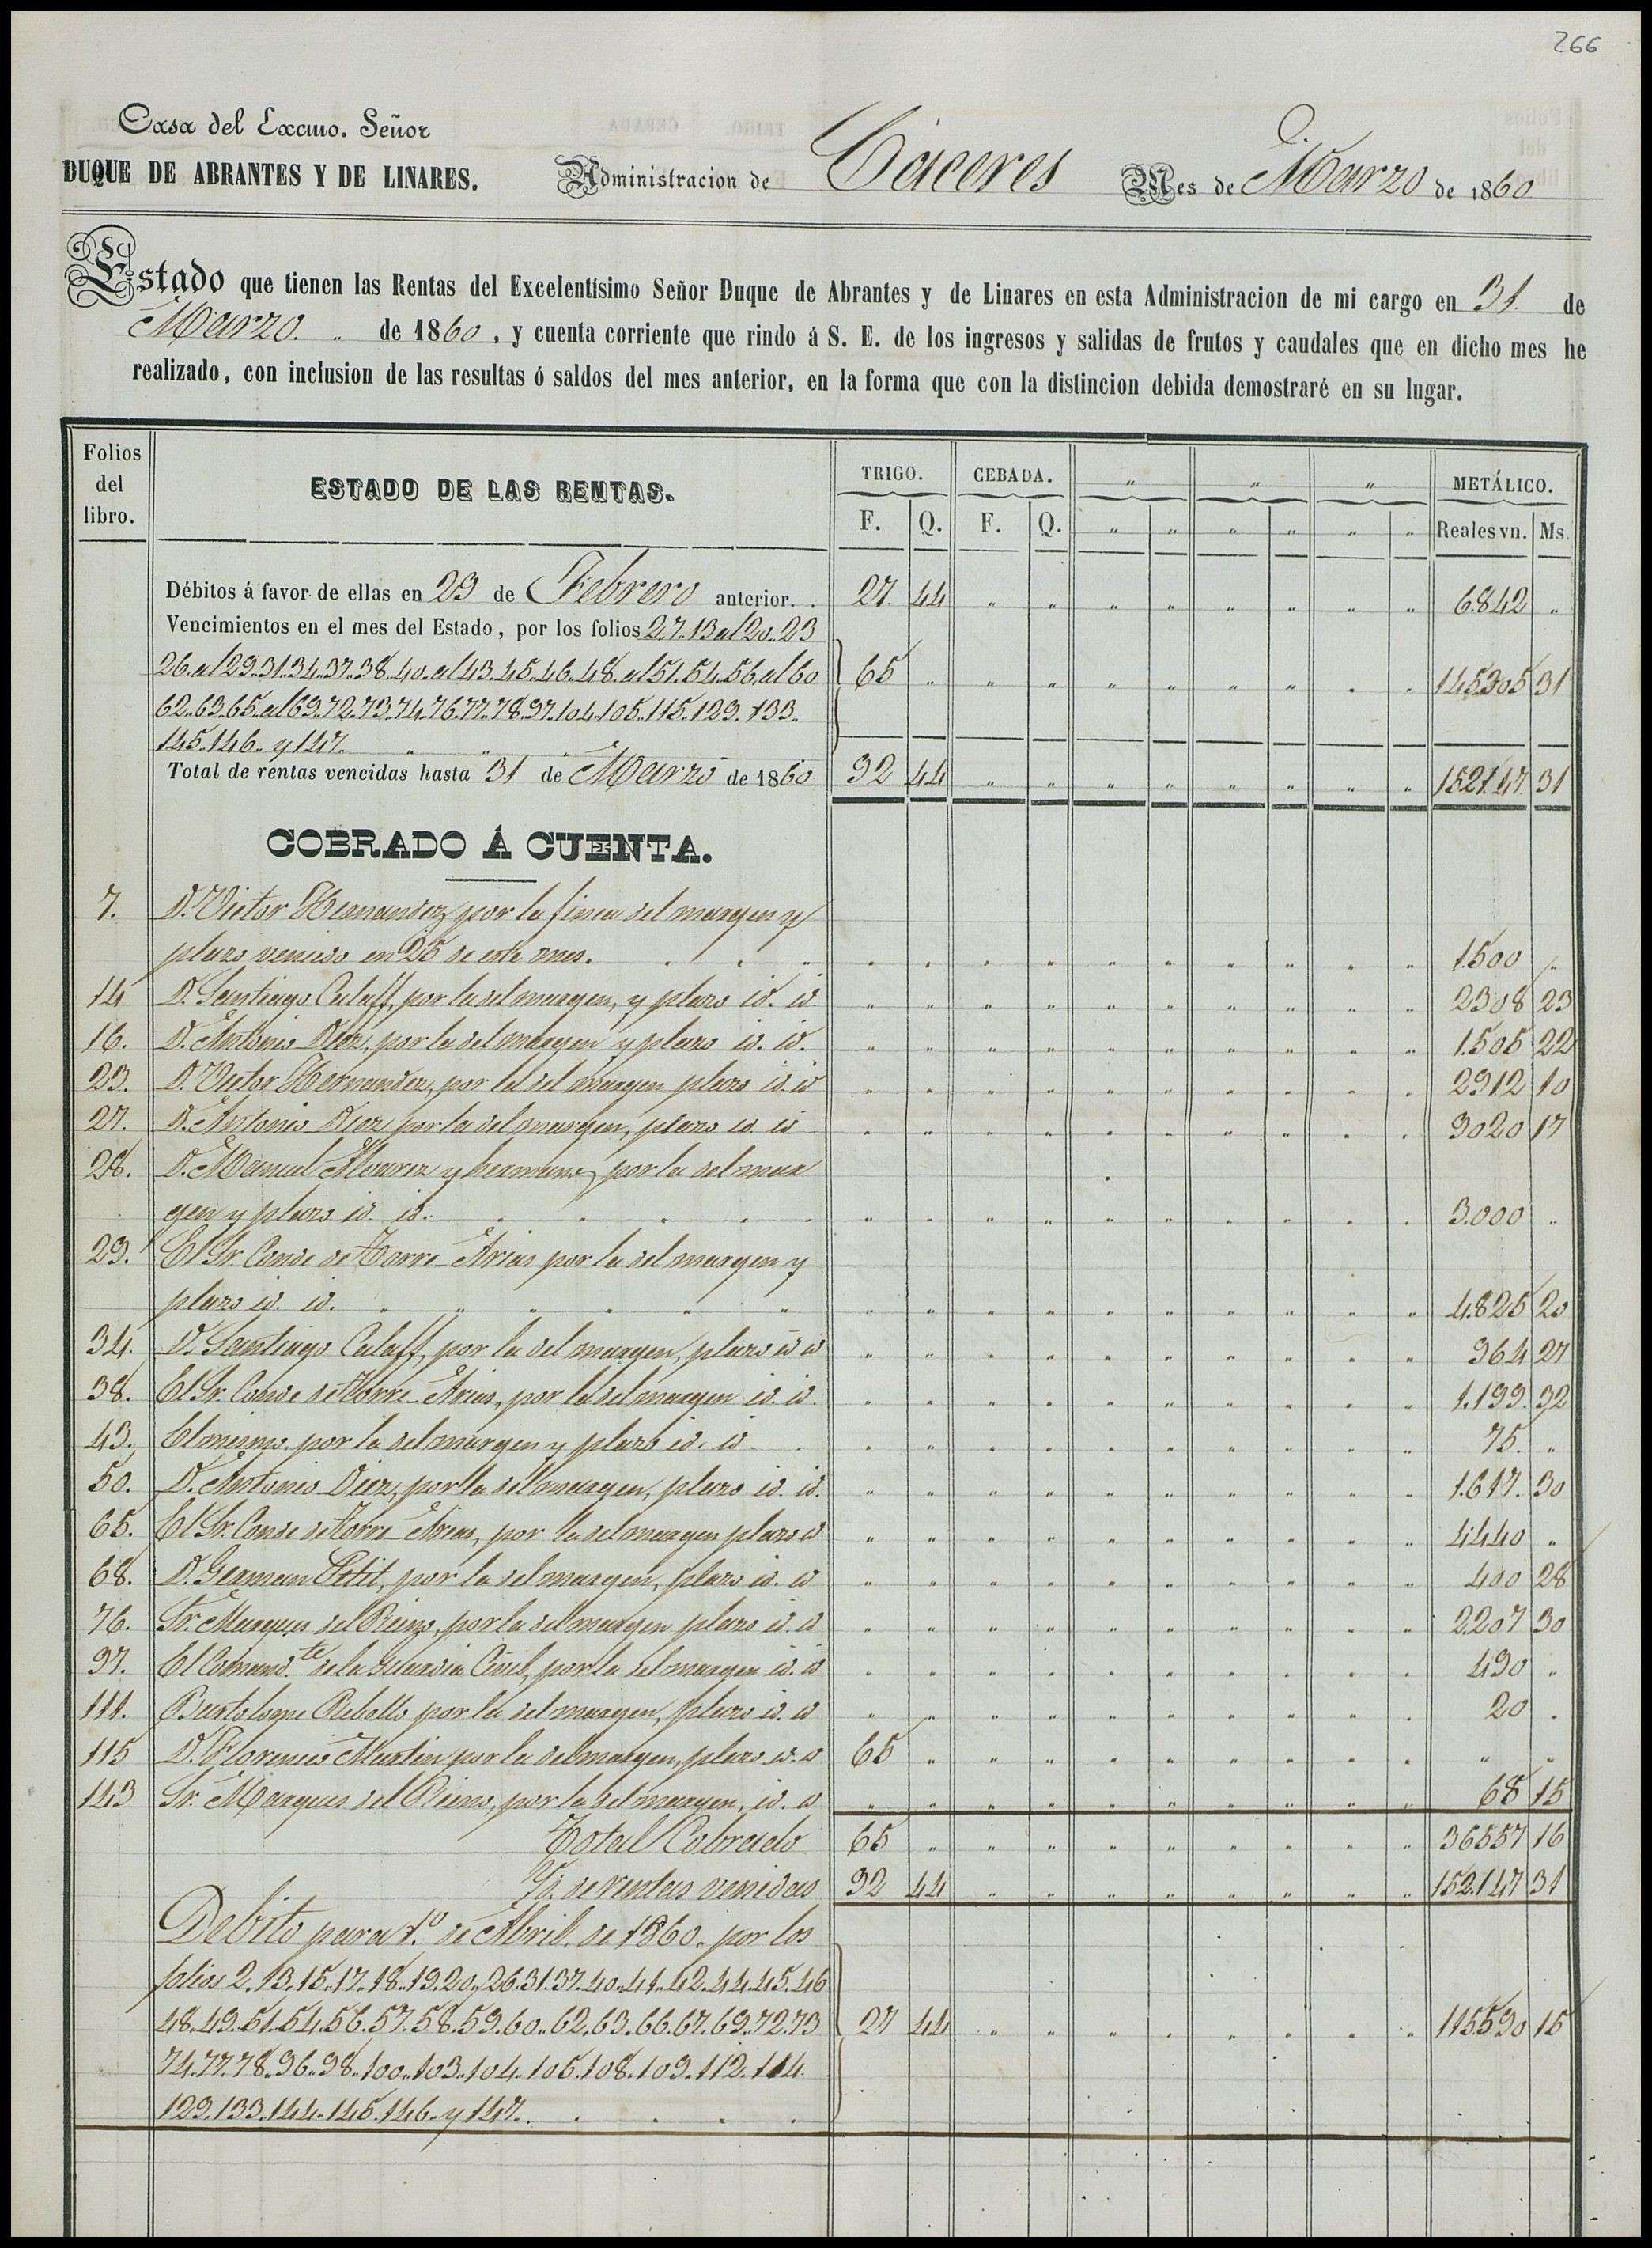 266
Casa del Excmo. Señor
DUQUE DE ABRANTES Y DE LINARES. Administracion de Cáceres Mes de Marzo de 1860
Estado que tienen las Rentas del Excelentísimo Señor Duque de Abrantes y de Linares en esta Administracion de mi cargo en 31 de
Marzo. „ de 1860, y cuenta corriente que rindo á S. E. de los ingresos y salidas de frutos y caudales que en dicho mes he
realizado, con inclusion de las resultas ó saldos del mes anterior, en la forma que con la distincion debida demostraré en su lugar.
Folios del libro. ESTADO DE LAS RENTAS. TRIGO. CEBADA. „ „ „ METÁLICO.
F. Q. F. Q. „ „ „ „ „ „ Reales vn. Ms.
Débitos á favor de ellas en 29 de Febrero anterior. . 27. 44 „ „ „ „ „ „ „ „ 6.842 „
Vencimientos en el mes del Estado, por los folios 2.7.13 al 20..23
26. al 29..31.34.37.38..40. al 43.45.46.48. al 51.54.56. al 60 65 „ „ „ „ „ „ „ „ „ 145305 31
62..63.65. al 69.72.73.74.76.77.78.97.104.105.115.129.133.
145.146. y 147. „ „ „
Total de rentas vencidas hasta 31 de Marzo de 1860 92 44 „ „ „ „ „ „ „ „ 152.147. 31
COBRADO Á CUENTA.
7. D. Victor Hernandez por la finca del margen y
plazo vencido en 25 de este mes. „ „ „ „ „ „ „ „ „ „ 1.500 „
14 D. Santiago Calaff, por la del margen, y plazo id. id. „ „ „ „ „ „ „ „ „ „ 2308 23
16. D. Antonio Diez, por la del margen y plazo id. id. „ „ „ „ „ „ „ „ „ „ 1.505 22
23. D. Victor Hernandez, por la del margen plazo id. id „ „ „ „ „ „ „ „ „ „ 2912 10
27. D. Antonio Diez por la del margen, plazo id id „ „ „ „ „ „ „ „ „ „ 9020 17
28. D. Manuel Alvarez y hermano, por la del mar
gen y plazo id. id. „ „ „ „ „ „ „ „ „ „ 3.000 „
29. El Sr. Conde de Torre-Arias por la del margen y
plazo id. id. „ „ „ „ „ „ „ „ „ „ 4.825 20
34. D. Santiago Calaff, por la del margen, plazo id id „ „ „ „ „ „ „ „ „ „ 964 27
38. El Sr. Conde de Torre-Arias, por la del margen id. id. „ „ „ „ „ „ „ „ „ „ 1.199. 32
43. El mismo por la del margen y plazo id. id. „ „ „ „ „ „ „ „ „ „ 75. „
50. D. Antonio Diez, por la del margen, plazo id. id. „ „ „ „ „ „ „ „ „ „ 1.617. 30
65. El Sr. Conde de Torre-Arias, por la del margen plazo id „ „ „ „ „ „ „ „ „ „ 4440 „
68. D. German Petit, por la del margen, plazo id. id „ „ „ „ „ „ „ „ „ „ 400 28
76. Sr. Marques del Reino, por la del margen plazo id. id „ „ „ „ „ „ „ „ „ „ 2207 30
97. El Comand.te de la Guardia Civil, por la del margen id. id „ „ „ „ „ „ „ „ „ „ 490 „
111. Bartolome Rebollo por la del margen, plazo id. id „ „ „ „ „ „ „ „ „ „ 20 .
115 D. Florencio Martin por la del margen, plazo id. id 65 „ „ „ „ „ „ „ „ „ „ „
143 Sr. Marques del Reino, por la del margen, id. id „ „ „ „ „ „ „ „ „ „ 68 15
Total Cobrado 65 „ „ „ „ „ „ „ „ „ 36557 16
Yd. de rentas vencidas 92 44 „ „ „ „ „ „ „ „ 152.147 31
Debito para 1.º de Abril. de 1860. por los
folios 2.13.15.17.18.19.20.26.31.37.40.41.42.44.45.46
48.49.51.54.56.57.58.59.60.62.63.66.67.69.72.73 27 44 „ „ „ „ „ „ „ „ 115.590 15
74.77.78.96.98.100.103.104.105.108.109.112.114.
129.133.144.145.146. y 147.